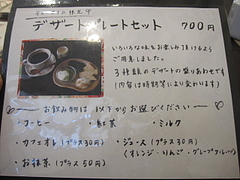 デザートプレートセット 700円
いろいろな味をお楽しみ頂けるよう
ご用意しました。
3種類のデザートの盛り合わせです
(内容は時期等により変わります)
お飲み物は以下からお選びください
・コーヒー ・紅茶 ・ミルク
・カフェオレ(プラス30円) ・ジュース(プラス30円)
(オレンジ・りんご・グレープフルーツ)
・お抹茶(プラス50円)